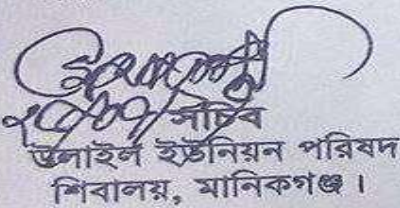 সচিব
উলাইল ইউনিয়ন পরিষদ
শিবালয়, মানিকগঞ্জ।